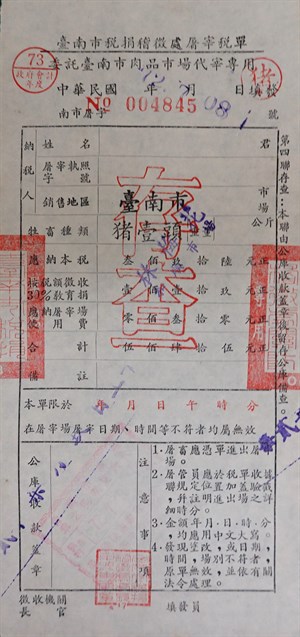 臺南市稅捐稽徵處屠宰稅單
委託臺南市肉品市場代宰專用
73
政府會計
年度
猪
中華民國 年 月 日填發
南市屠字 No 004845 號
納稅人
姓名 君
屠宰執照字號
銷售地區 臺南市 市場
牲畜種類 猪壹頭 公斤
應納本稅 叁佰 拾陸元正
按30%稅額徵收教育捐 壹佰 拾玖元正
應納屠宰場使用費 零佰 拾零元正
合計 伍佰肆拾伍元正
備註
存查
第四聯存查:本聯由公庫收款蓋章後留存公庫備查。
本單限於 年 月 日 午 時 分
在屠宰場屠宰日期、時間等不符者均屬無效
公庫收款蓋章
注意事項
1.屠畜應憑單進出屠場。
2.屠管員應於稅單收驗聯規定位置加蓋號碼,并註明進出場之詳細時分。
3.金額年、月、日、時、分,均應用中文大寫。
4.發現塗改,或日期,時間,場別不符者,原單無效,並依有關法令處理。
徵收機關
長官
填發員